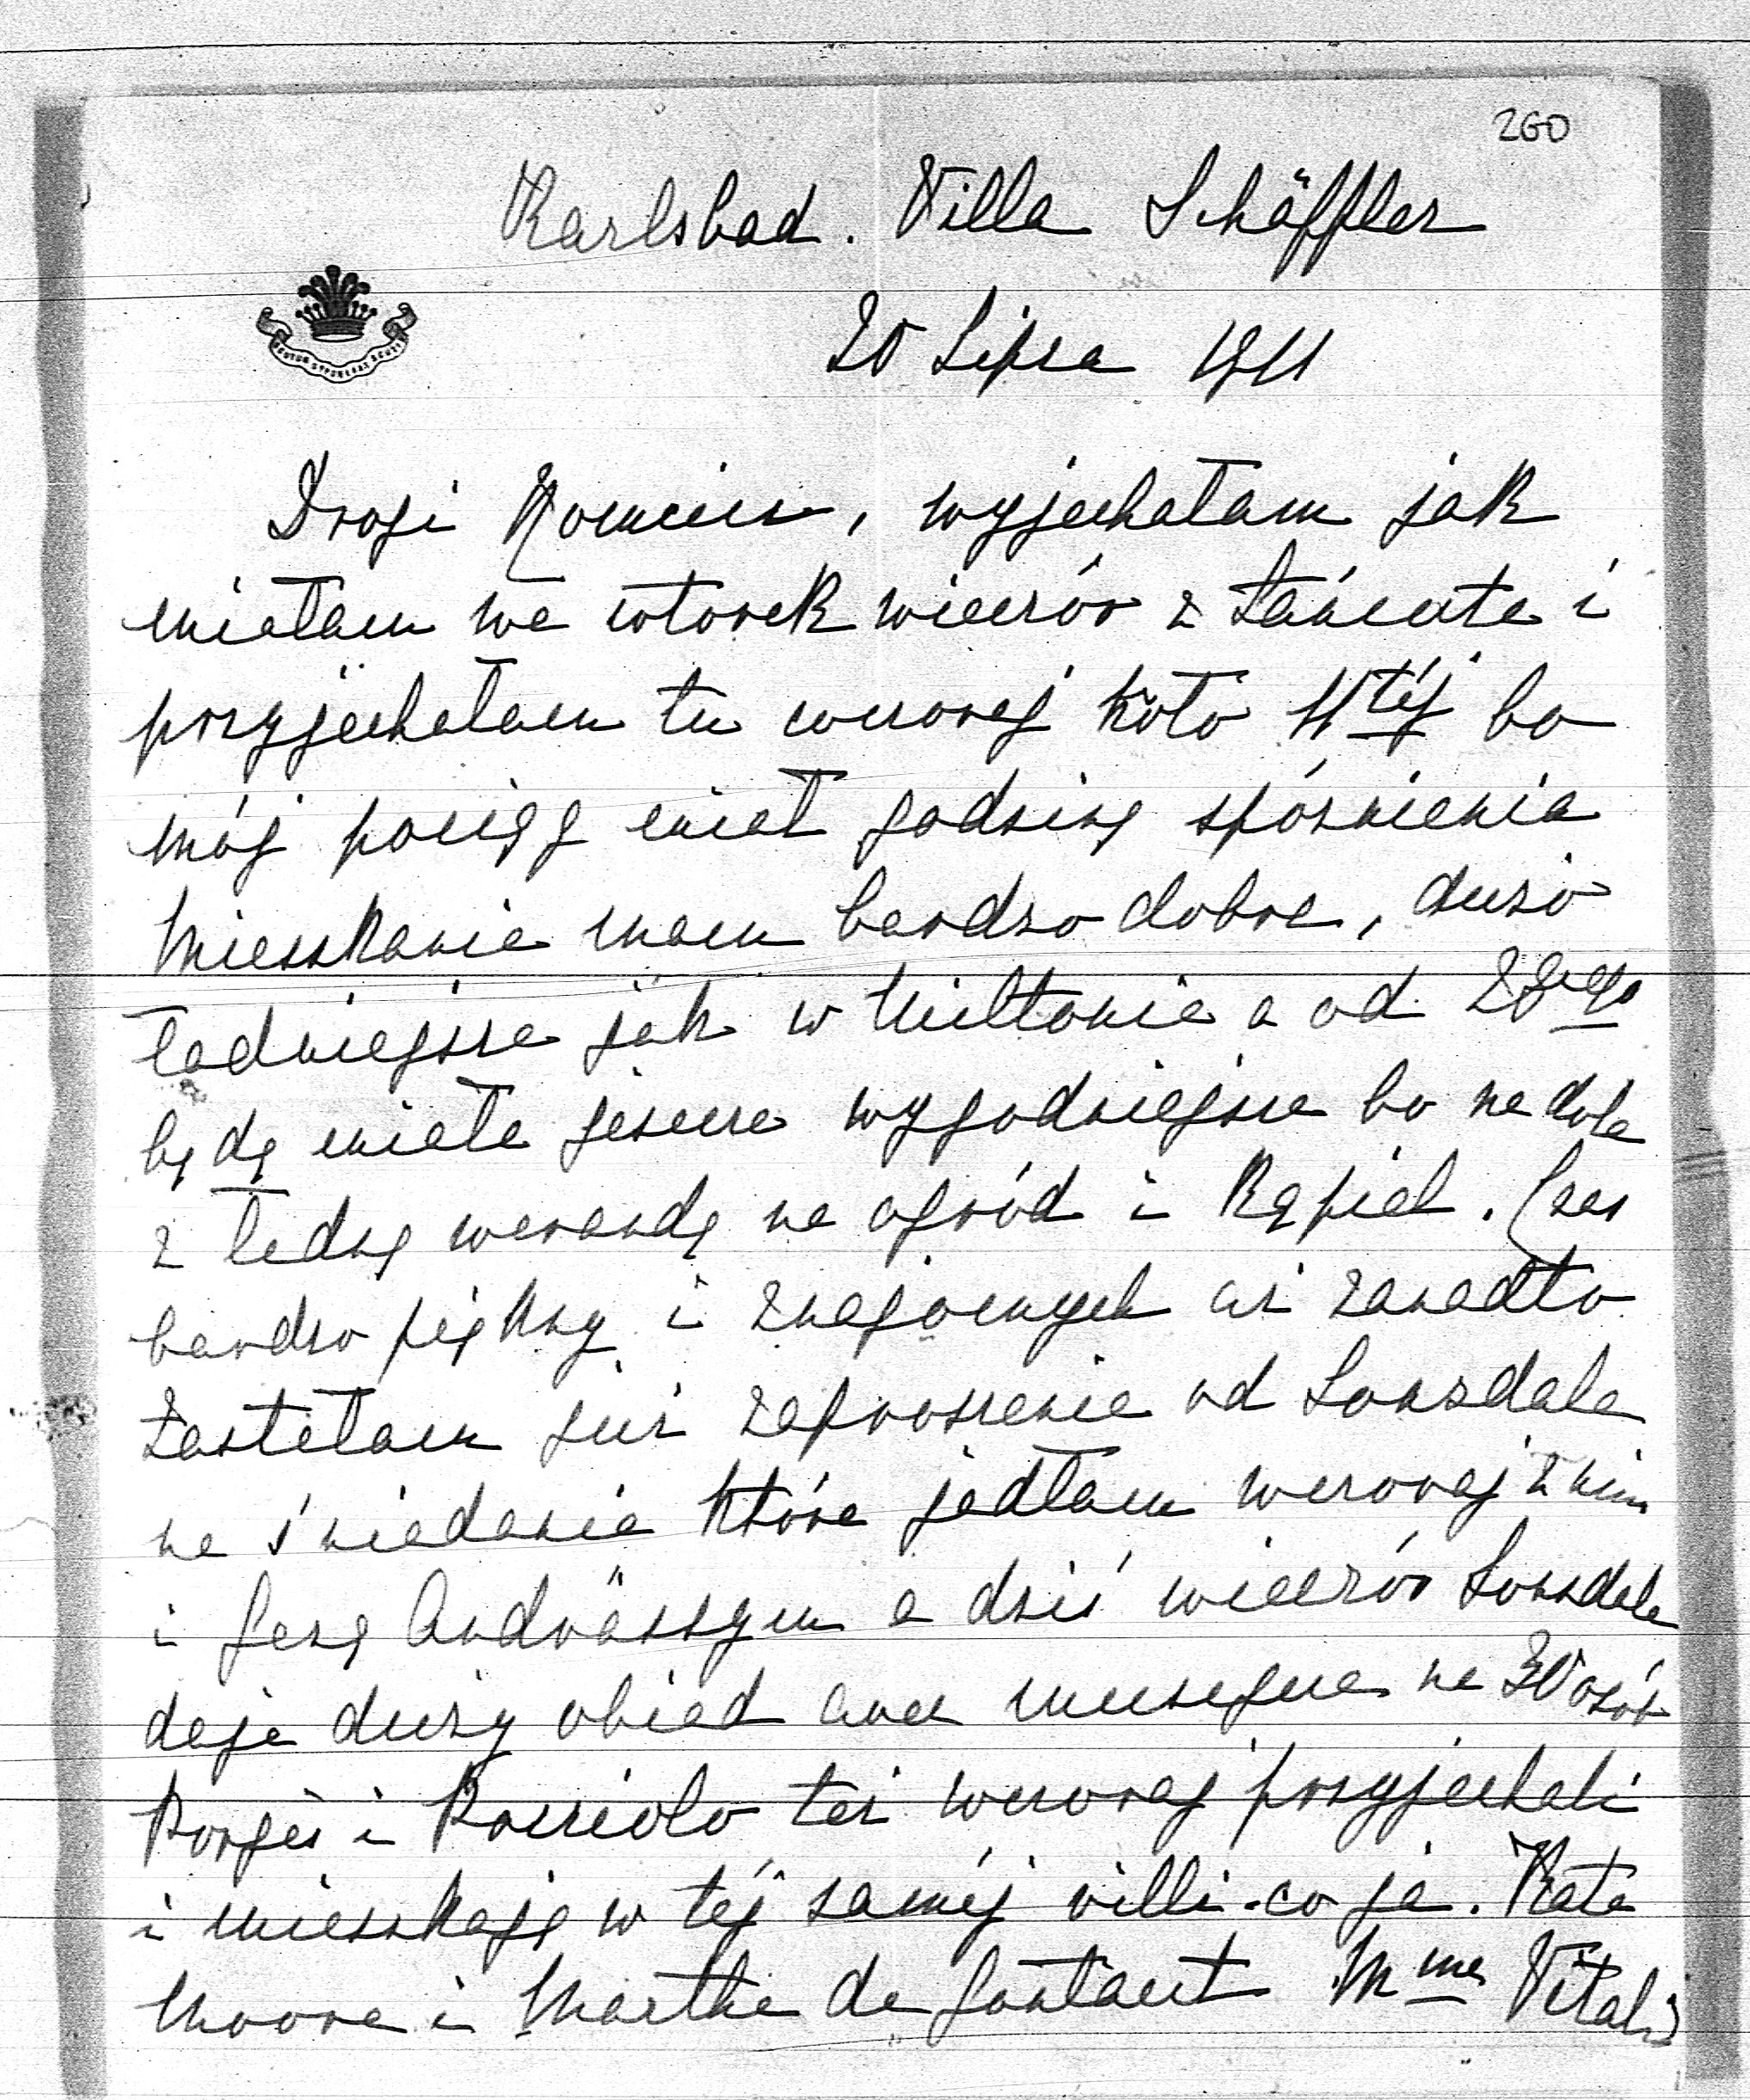 260
Karlsbad. Villa Schäffler
20 Lipca 1911
Drogi Romciu, wyjechałam jak
miałam we wtorek wieczór z Łańcuta i
przyjechałam tu wczoraj koło 11téj bo
mój pociąg miał godzinę spóznienia
Mieszkanie mam bardzo dobre, dużo
ładniejsze jak w Miltonie a od 28go
będę miała jeszcze wygodniejsze bo na dole
z ładną werandą na ogród i kąpiel. Czas
bardzo piękny i znajomych aż zanadto
Zastałam już zaproszenie od Lonsdale
na śniadanie które jadłam wczoraj z nim
i Gezą Andrássym a dziś wieczór Lonsdale
daje duży obiad avec musique na 30 osób
Borgès i też wczoraj przyjechali
i mieszkają w téj saméj villi co ja. Kate
Moore i Marthe de Fontaut Mme Vitali